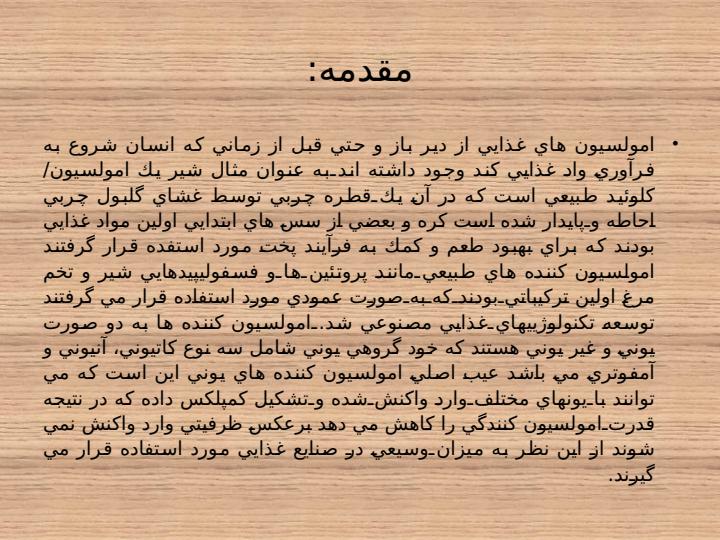 مقدمه:
• امولسيون هاي غذايي از دير باز و حتي قبل از زماني كه انسان شروع به
فرآوري واد غذايي كند وجود داشته اند.به عنوان مثال شير يك امولسيون/
كلوئيد طبيعي است كه در آن يك قطره چربي توسط غشاي گلبول چربي
احاطه و پايدار شده است كره و بعضي از سس هاي ابتدايي اولين مواد غذايي
بودند كه براي بهبود طعم و كمك به فرآيند پخت مورد استفده قرار گرفتند
امولسيون كننده هاي طبيعي مانند پروتئين ها و فسفوليپيدهايي شير و تخم
مرغ اولين تركيباتي بودند كه به صورت عمودي مورد استفاده قرار مي گرفتند
توسعه تكنولوژييهاي غذايي مصنوعي شد.. امولسيون كننده ها به دو صورت
يوني و غير يوني هستند كه خود گروهي يوني شامل سه نوع كاتيوني، آنيوني و
آمفوتري مي باشد عيب اصلي امولسيون كننده هاي يوني اين است كه مي
توانند با يونهاي مختلف وارد واكنش شده و تشكيل كمپلكس داده كه در نتيجه
قدرت امولسيون كنندگي را كاهش مي دهد برعكس ظرفيتي وارد واكنش نمي
شوند از اين نظر به ميزان وسيعي در صنايع غذايي مورد استفاده قرار مي
گيرند.